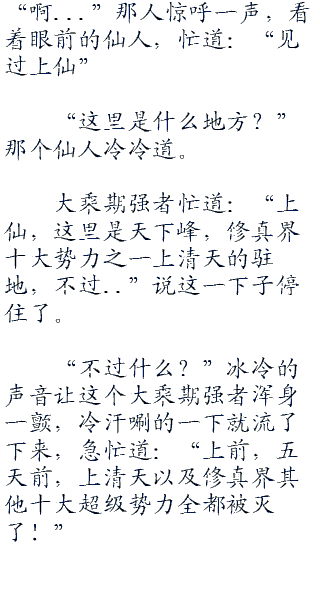 “啊...”那人惊呼一声，看
着眼前的仙人，忙道：“见
过上仙”
“这里是什么地方？”
那个仙人冷冷道。
大乘期强者忙道：“上
仙，这里是天下峰，修真界
十大势力之一上清天的驻
地，不过..”说这一下子停
住了。
“不过什么？”冰冷的
声音让这个大乘期强者浑身
一颤，冷汗唰的一下就流了
下来，急忙道：“上前，五
天前，上清天以及修真界其
他十大超级势力全都被灭
了！”